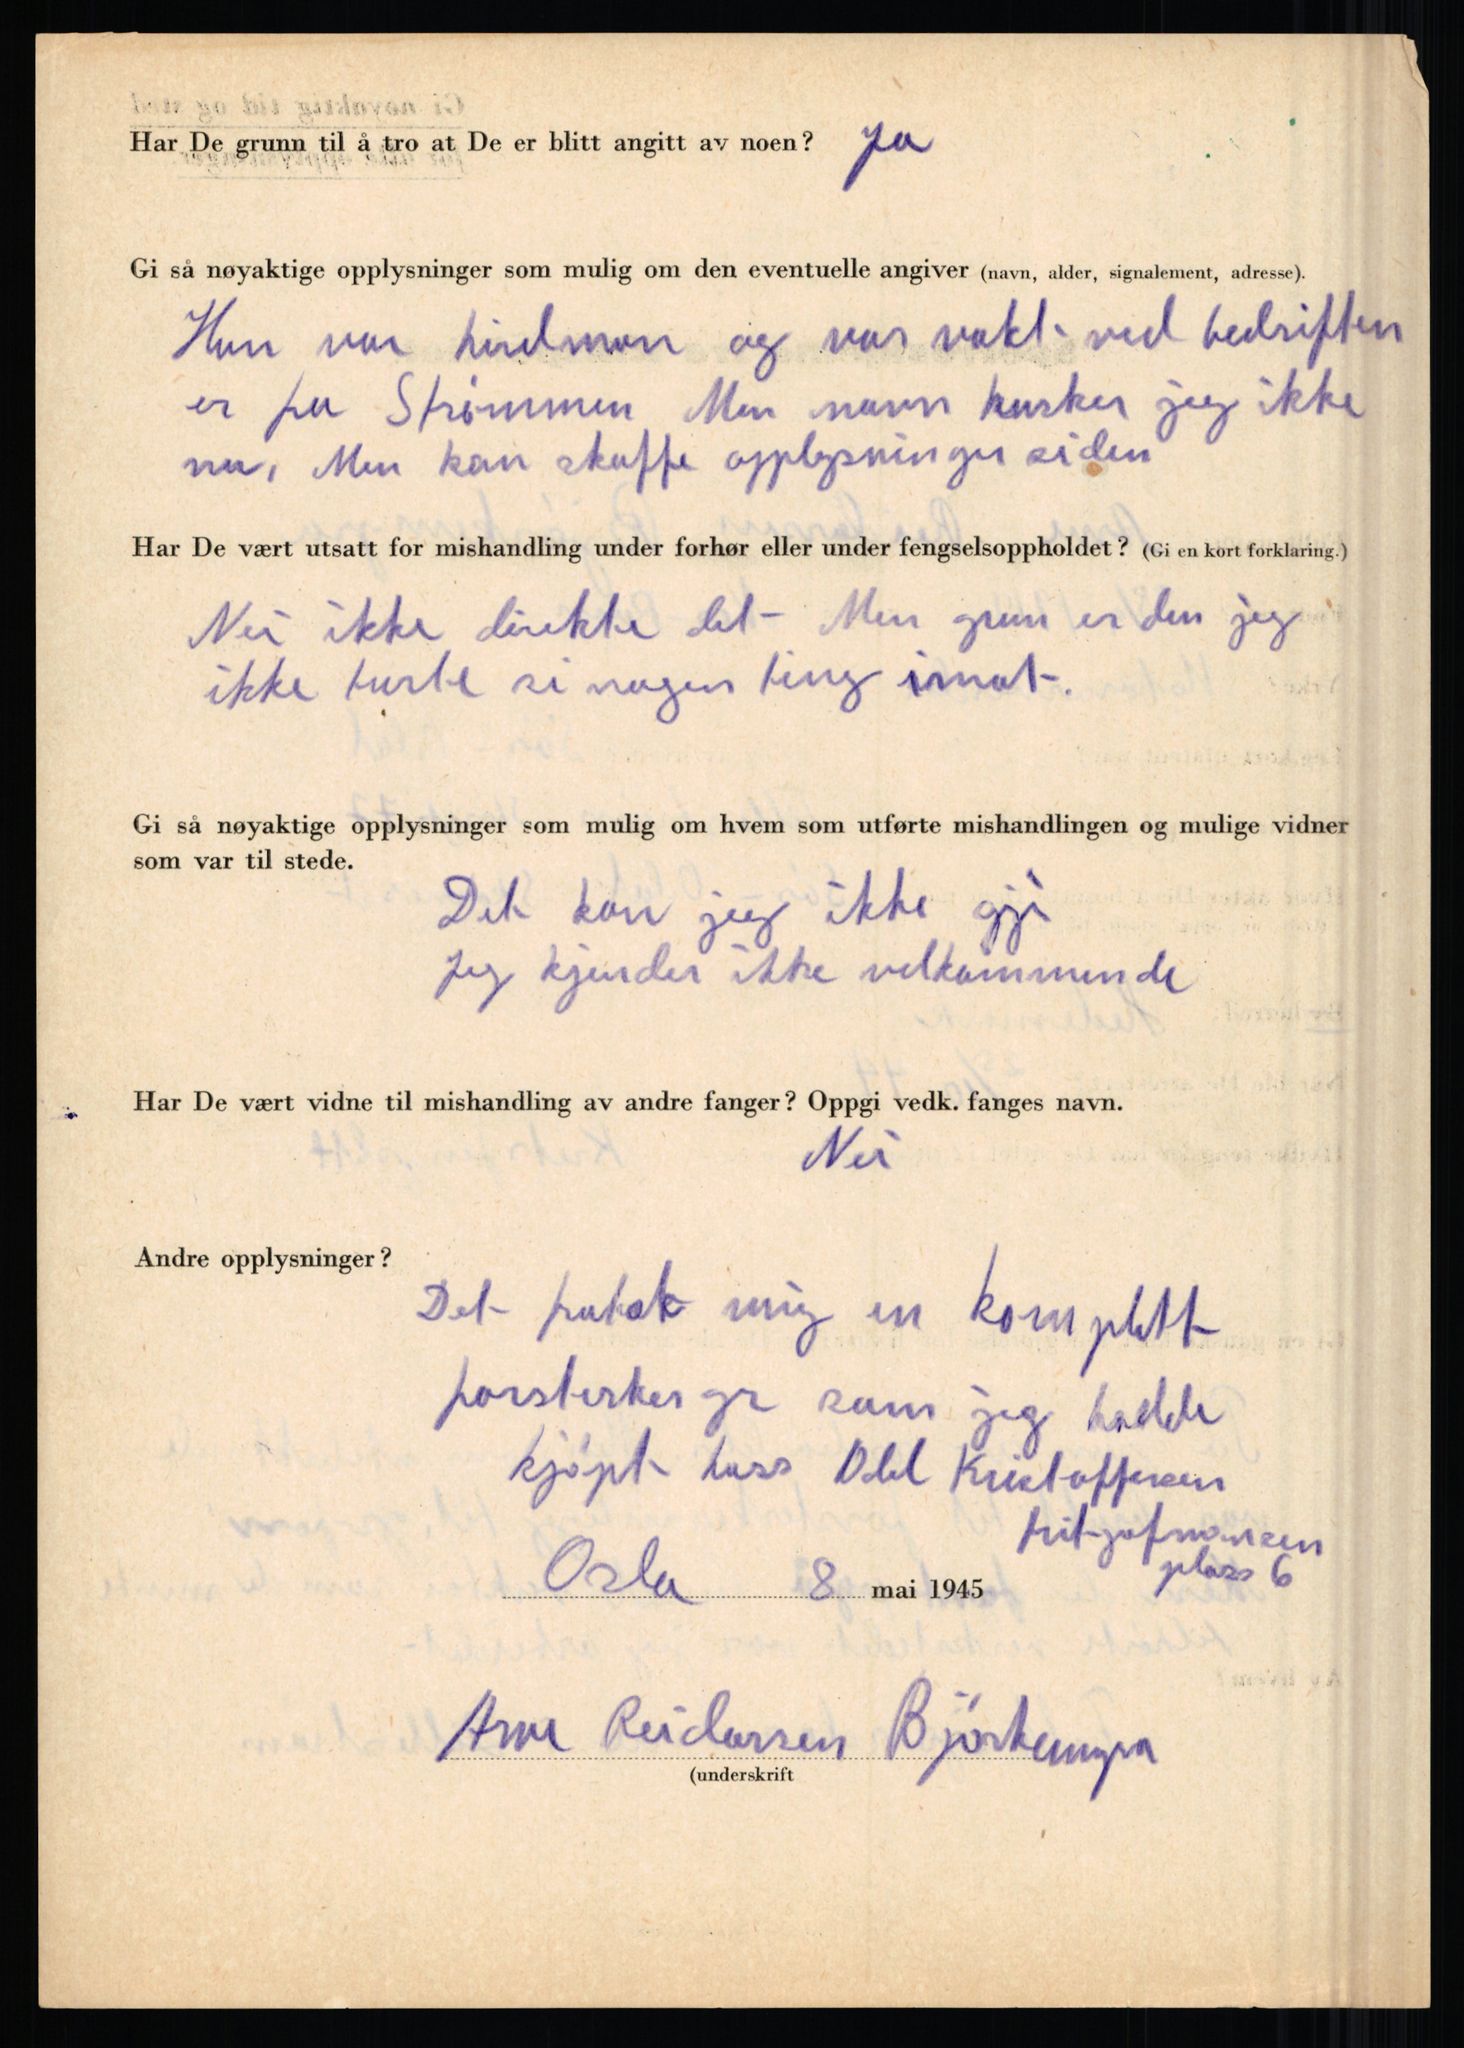 Har De grunn til å tro at De er blitt angitt av noen? Ja
Gi så nøyaktige opplysninger som mulig om den eventuelle angiver (navn, alder, signalement, adresse).
Han var hirdman og var vakt ved bedriften
er fra Strømmen Men navn husker jeg ikke
nu, Men kan skaffe opplysninger siden
Har De vært utsatt for mishandling under forhør eller under fengselsoppholdet? (Gi en kort forklaring.)
Nei ikke direkte det Men grun er den jeg
ikke turte si nogen ting imot.
Gi så nøyaktige opplysninger som mulig om hvem som utførte mishandlingen og mulige vidner
som var til stede.
Det kan jeg ikke gji
Jeg kjender ikke velkommende
Har De vært vidne til mishandling av andre fanger? Oppgi vedk. fanges navn.
Nei
Andre opplysninger?
Det fratok mig en komplett
forsterker gr som jeg hadde
kjøpt hoss Odd Kristoffersen
fritjofnansen
plass 6
Oslo 8 mai 1945
Arne Reidarsen Björkemyra
(underskrift